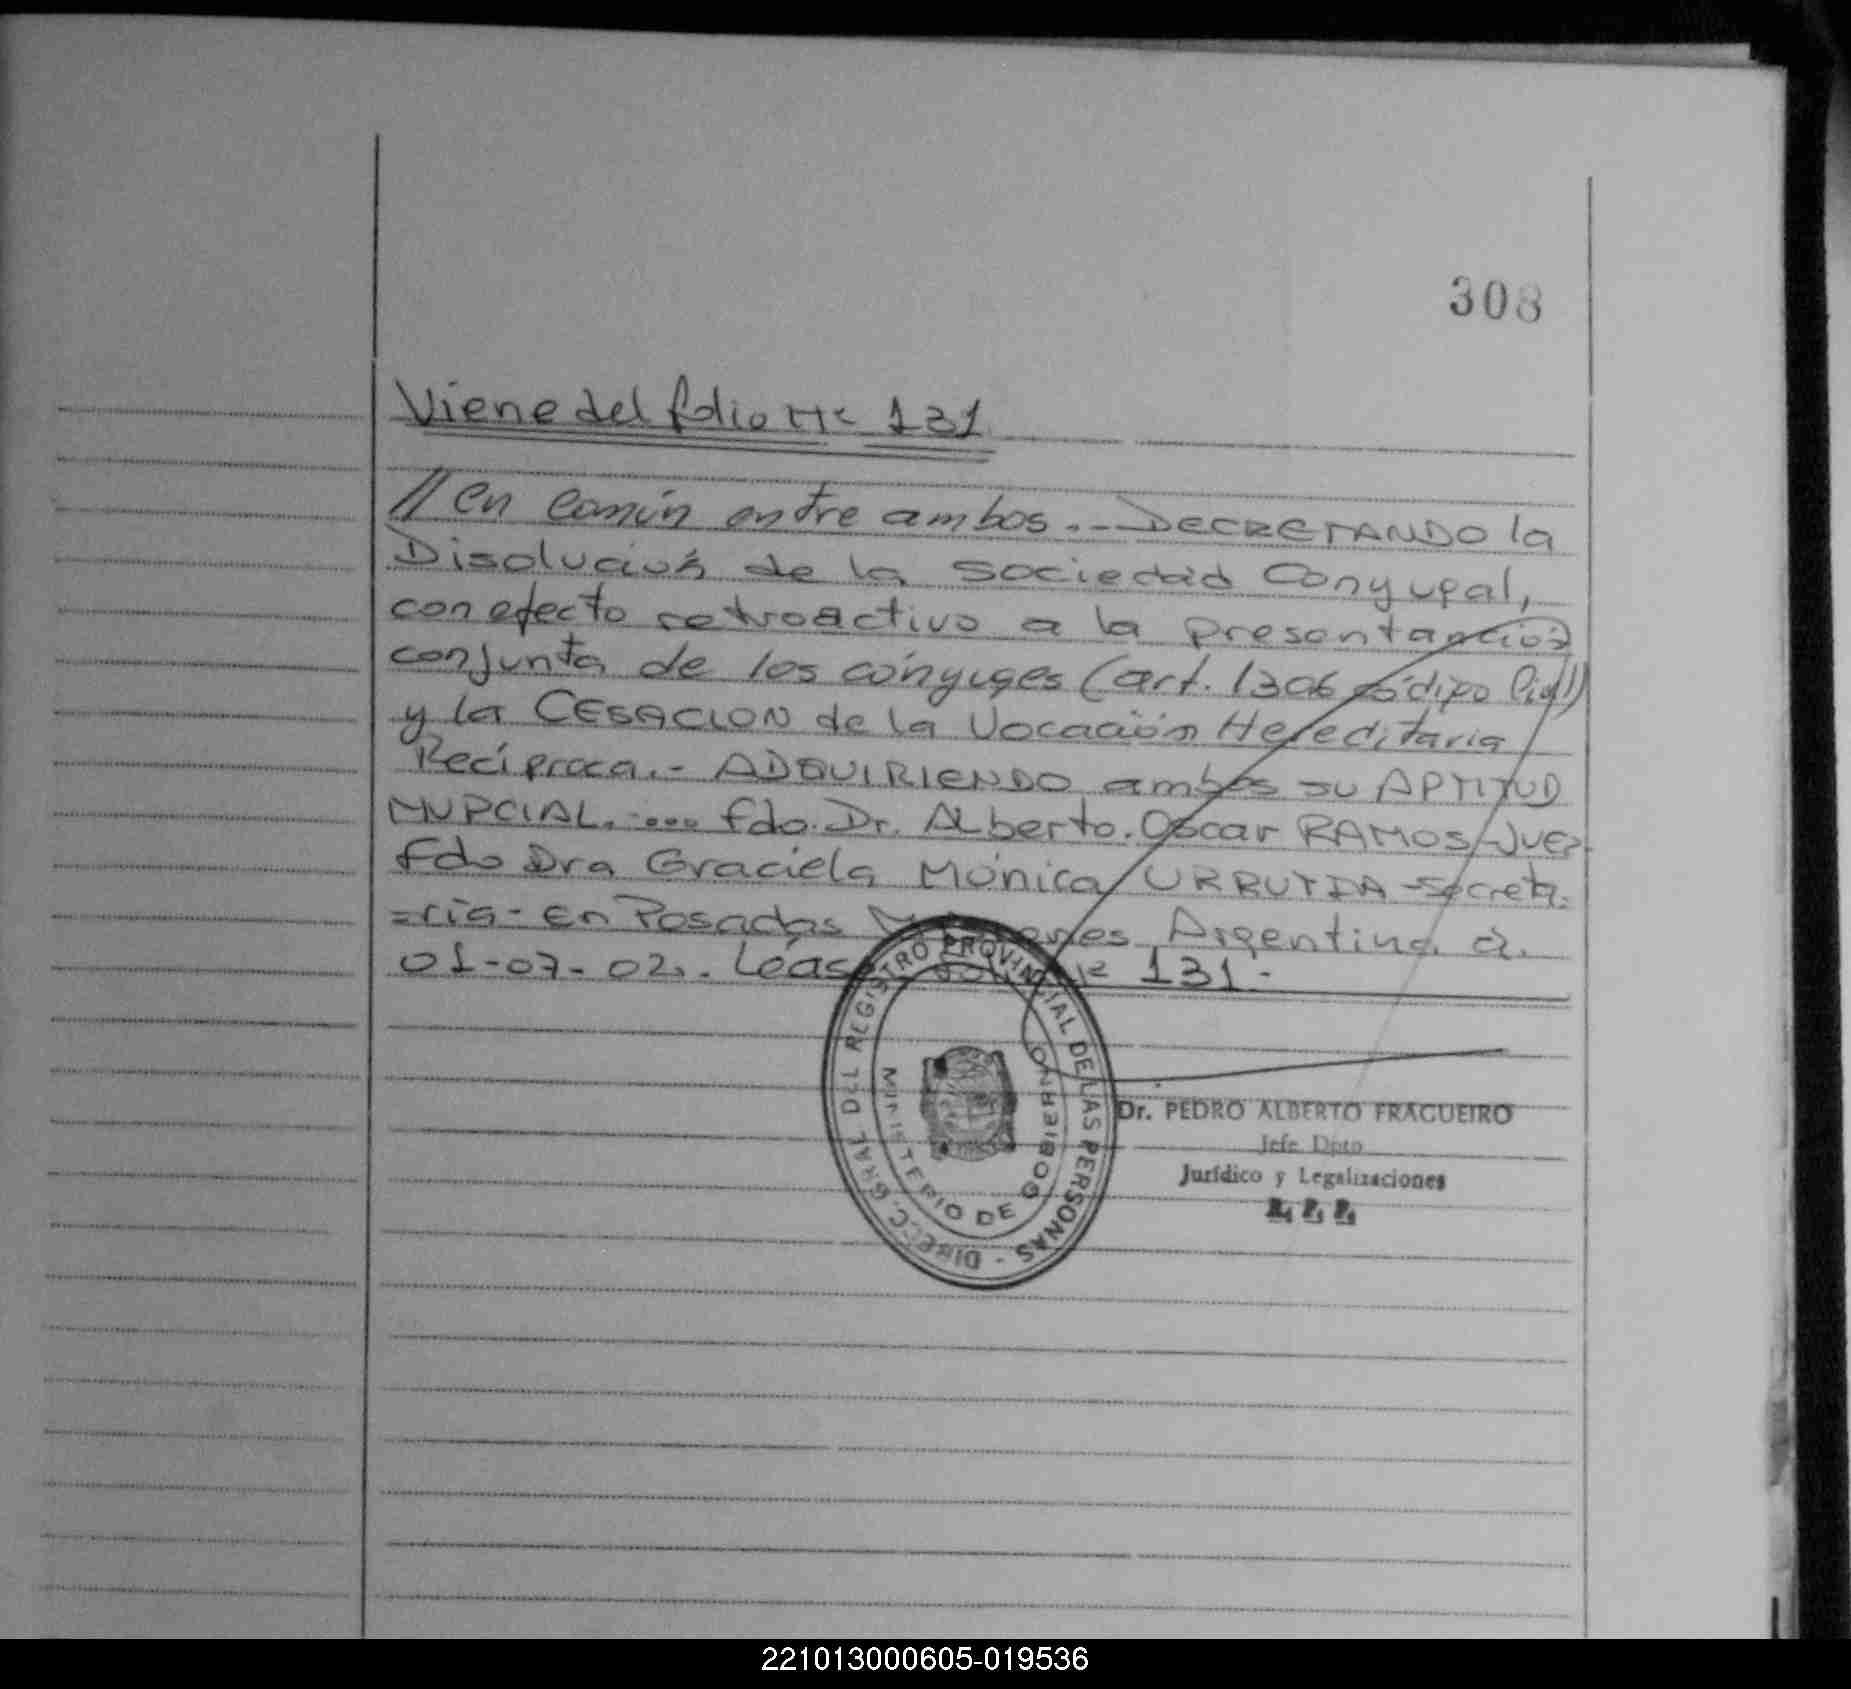 308
Viene del folio Nº 131
// en comün entre ambos.-- DECRETANDO la
Disolución de la sociedad Conyugal,
con efecto retroactivo a la presentación
conjunta de los cónyuges (art. 1306 código Civil)
y la CESACION de la Vocación Hereditaria
Recíproca.- ADQUIRIENDO ambos su APTITUD
NUPCIAL. -... fdo. Dr. Alberto. Oscar RAMOS - JUEZ.
fdo Dra Graciela Mónica URRUTIA - secreta.
=ria- En Posadas Misiones, Argentina a.
01-07-02.. Léase folio Nº 131.-
DIRECC. GRAL DEL REGISTRO PROVINCIAL DE LAS PERSONAS -
MINISTERIO DE GOBIERNO
Dr. PEDRO ALBERTO FRAGUEIRO
Jefe Dpto
Jurídico y Legalizaciones
R. P. P.
221013000605-019536